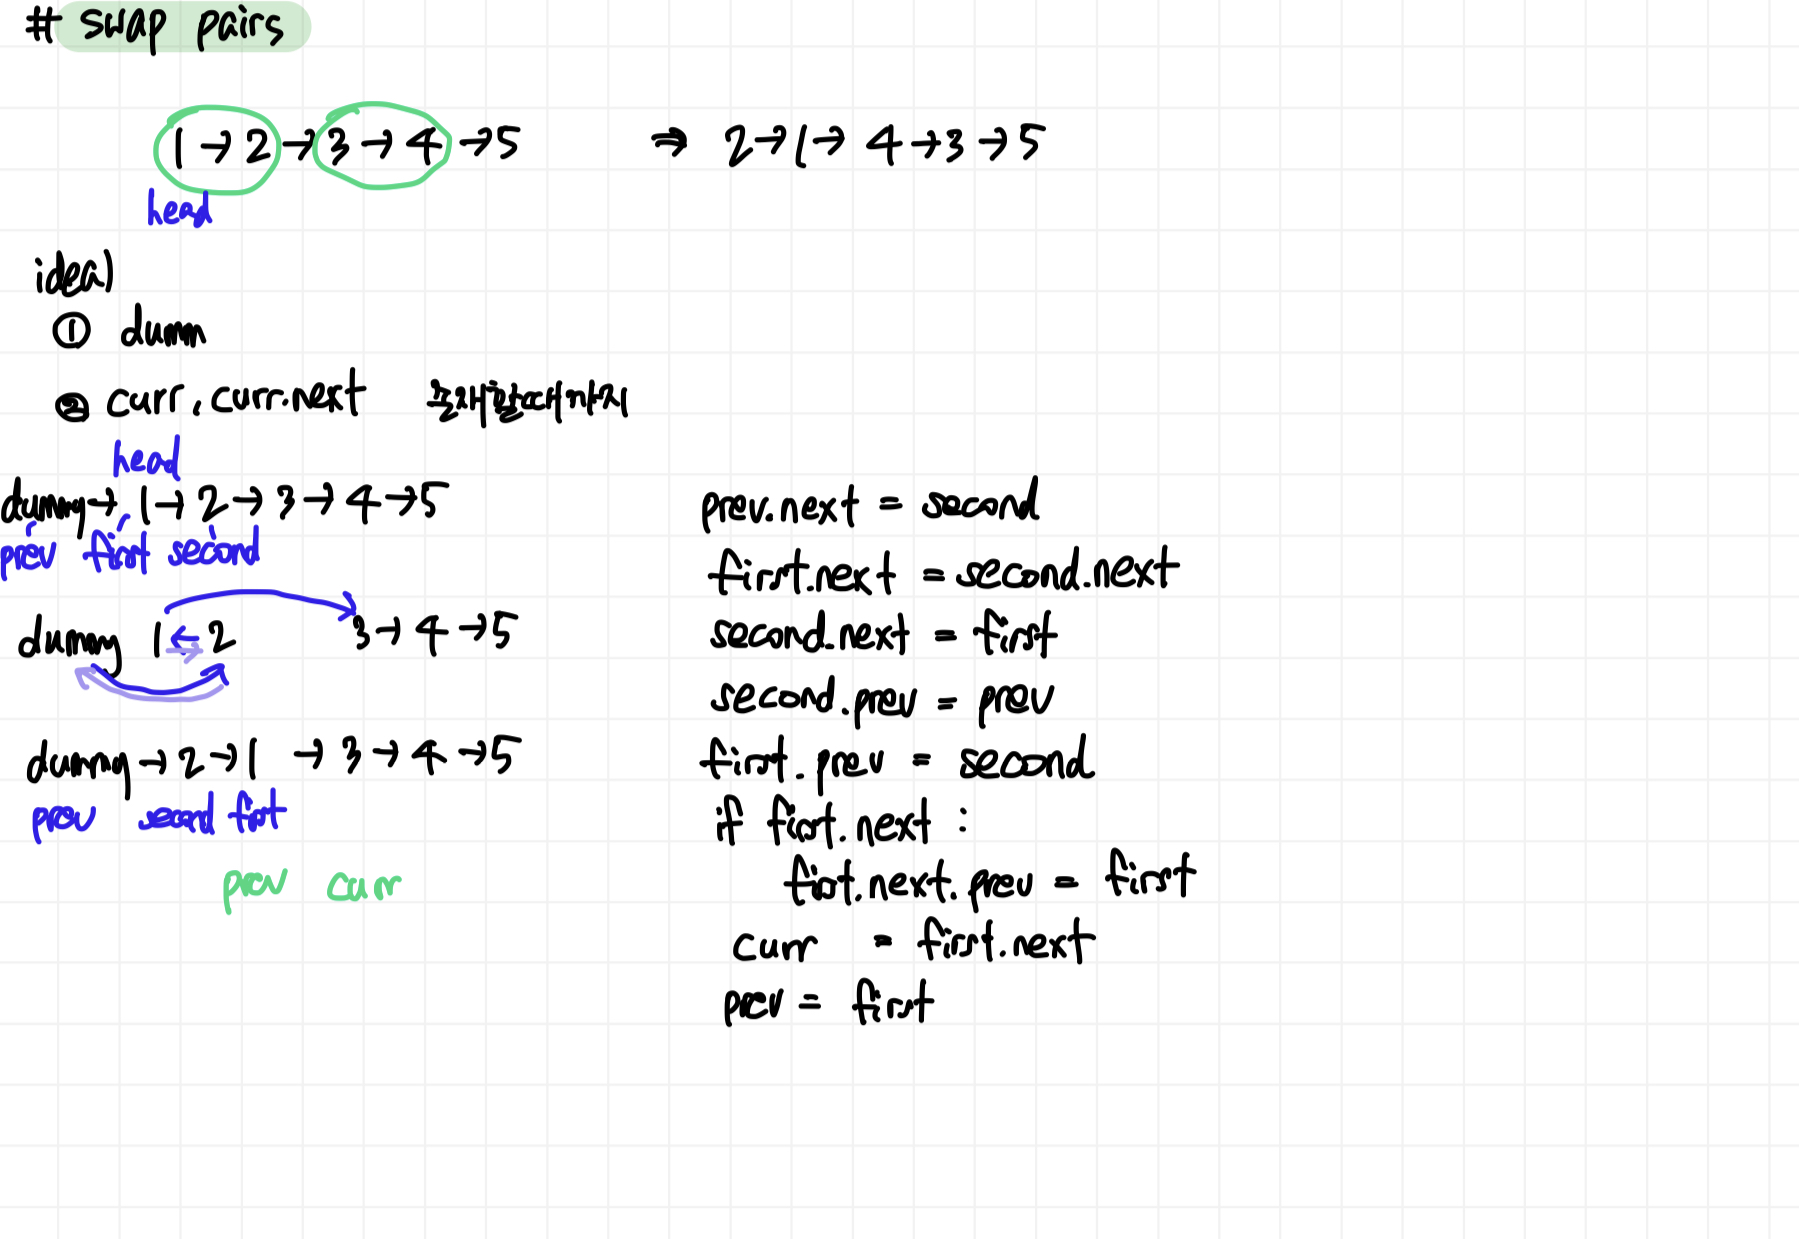 # swap pairs
1 → 2 → 3 → 4 → 5 ⇒ 2 → 1 → 4 → 3 → 5
head
idea)
① dumm
② curr, curr.next 존재할때까지
head
dummy → 1 → 2 → 3 → 4 → 5
prev first second
dummy 1 ← 2 3 → 4 → 5
dummy → 2 → 1 → 3 → 4 → 5
prev second first
prev curr
prev.next = second
first.next = second.next
second.next = first
second.prev = prev
first.prev = second
if first.next :
first.next.prev = first
curr = first.next
prev = first